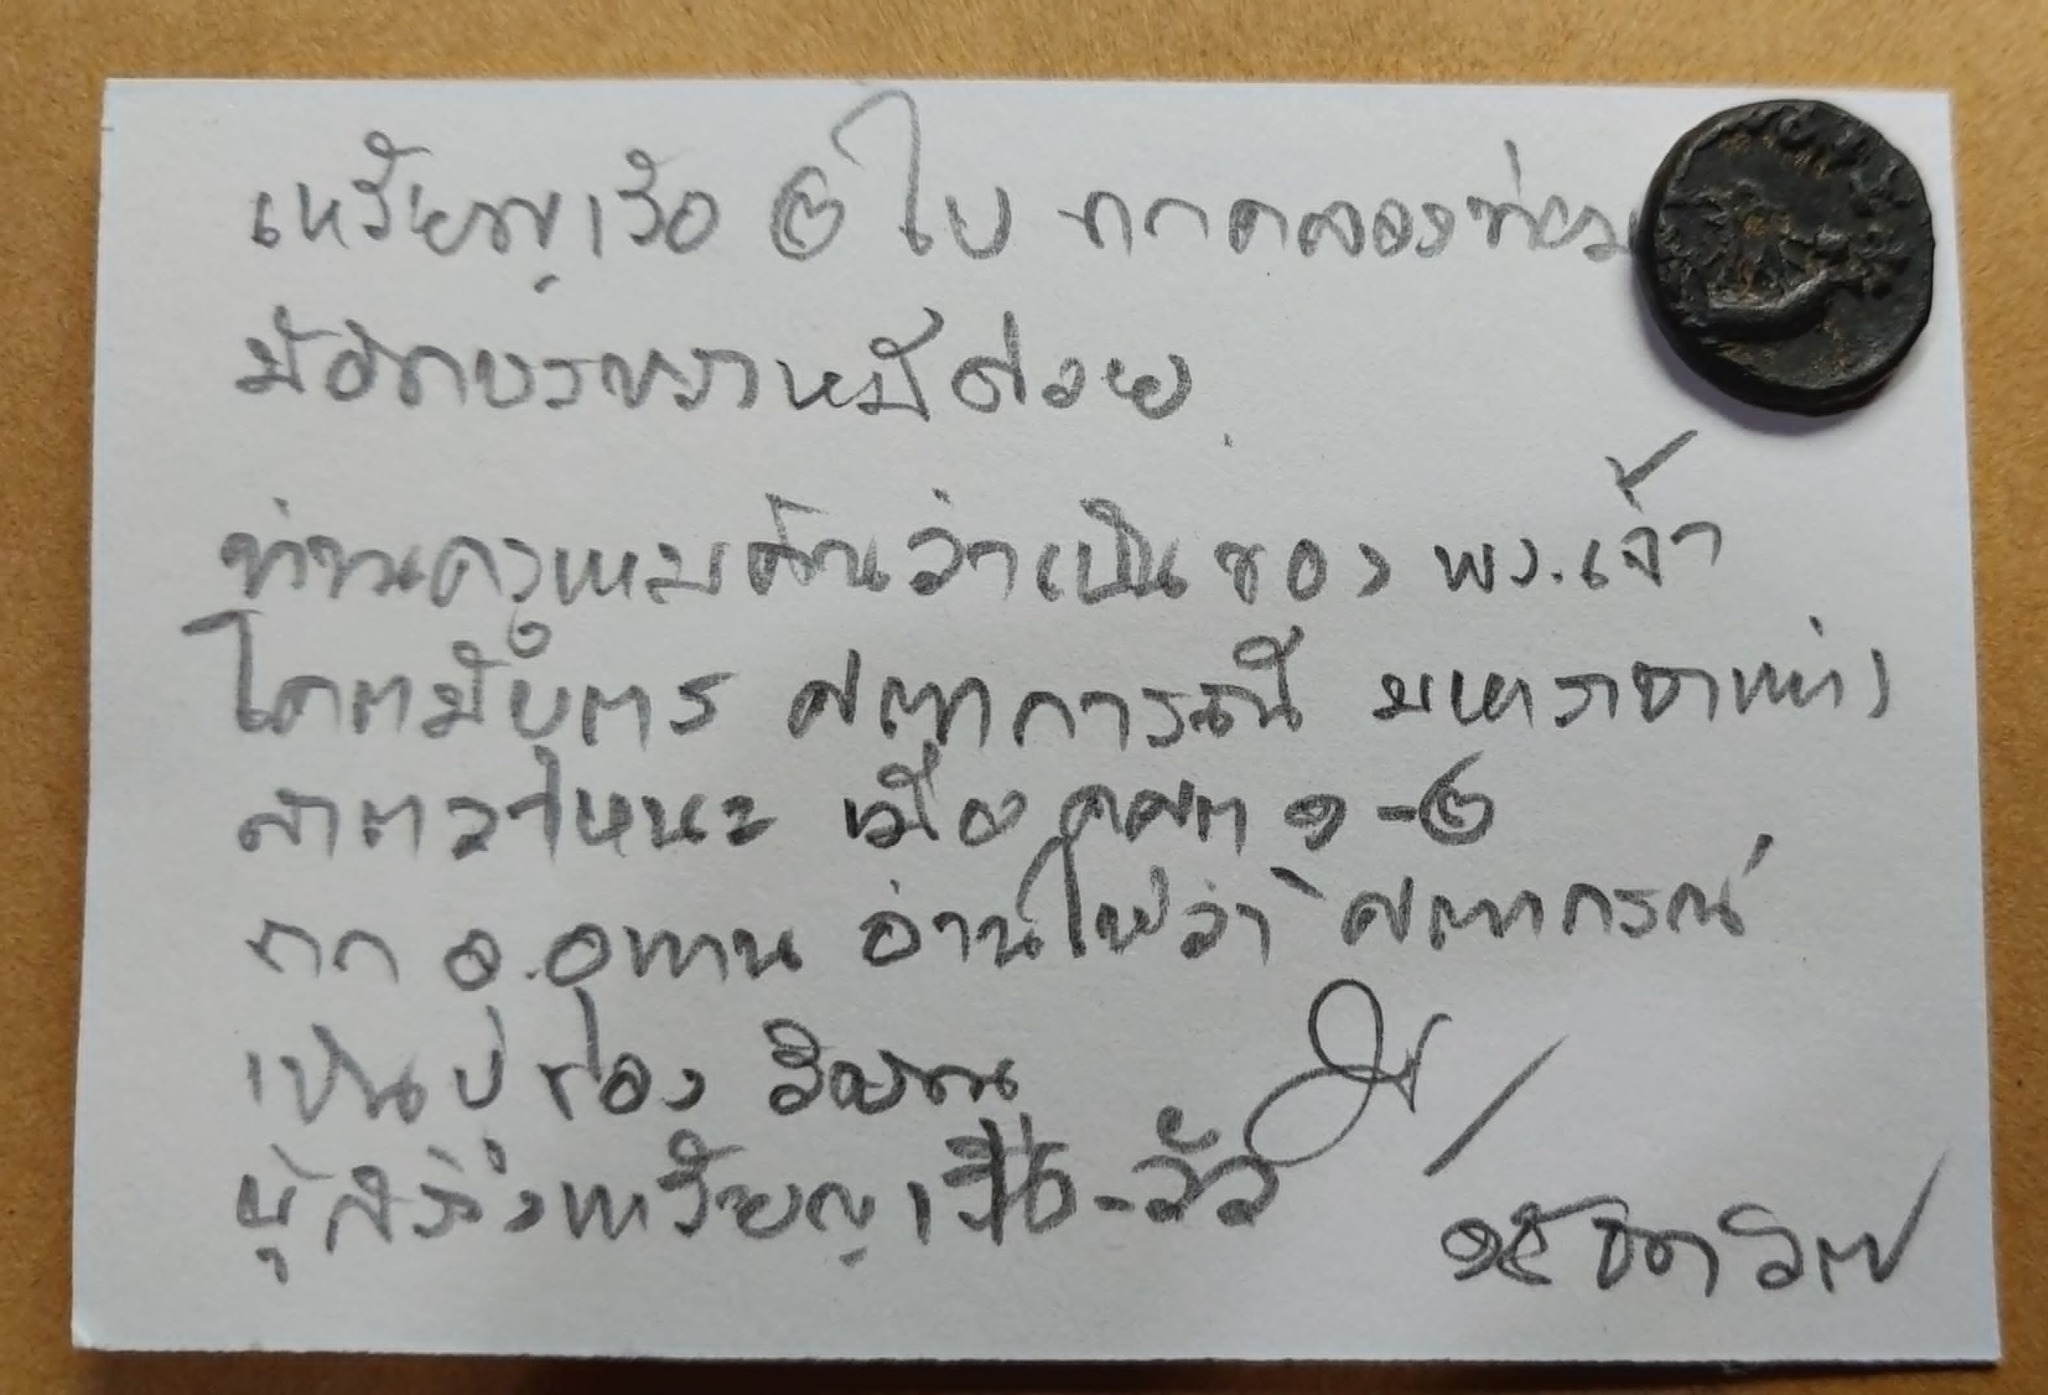 เหรียญเรือ ๒ ใบ จากคลองท่อม
มีอักษรพราหมีด้วย
ท่านครูแหม่มค้นว่าเป็นของ พระเจ้า
โคตมีบุตร ศตการณี มหาราชาแห่ง
สาตวาหนะ เมื่อ คศต ๑-๒
จาก อ.อุทาน อ่านให้ว่า ศตการณ์
เป็นปู่ของ
ผู้สร้างเหรียญเรือ-วัว
๑๕ ธค